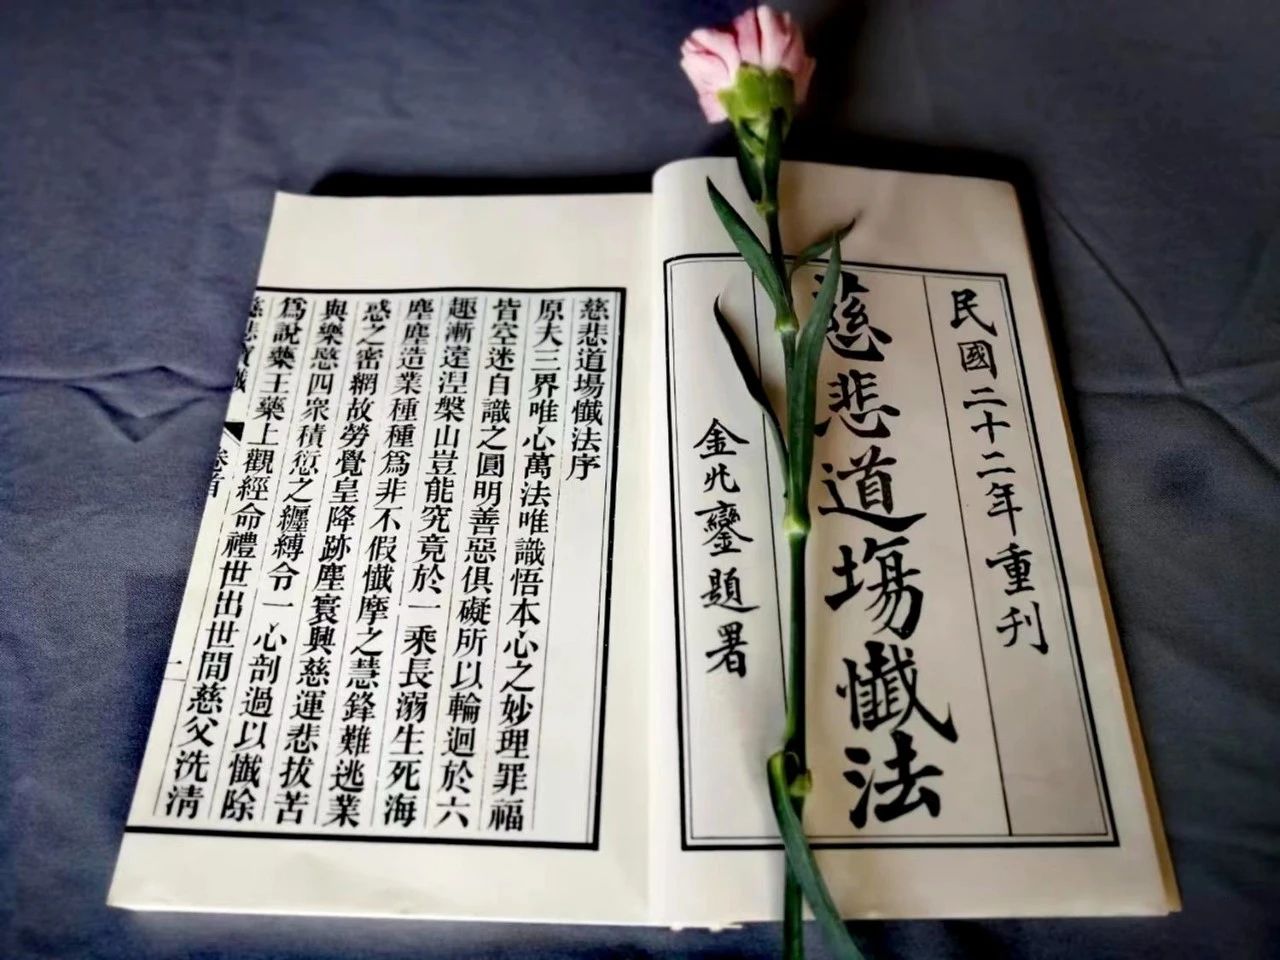 民國二十二年重刊
慈悲道塲懺法
金兆鑾題署
慈悲道場懺法序
原夫三界唯心萬法唯識悟本心之妙理罪福
皆空迷自識之圓明善惡俱礙所以輪迴於六
趣漸遠涅槃山豈能究竟於一乘長溺生死海
塵塵造業種種爲非不假懺摩之慧鋒難逃業
惑之密網故勞覺皇降跡塵寰興慈運悲拔苦
與樂愍四衆積愆之纏縛令一心剖過以懺除
爲說藥王藥上觀經命禮世出世間慈父洗清
慈悲寶懺 卷首